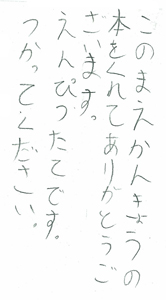 このまえかんきょうの
本をくれてありがとうご
ざいます。
えんぴつたてです。
つかってください。